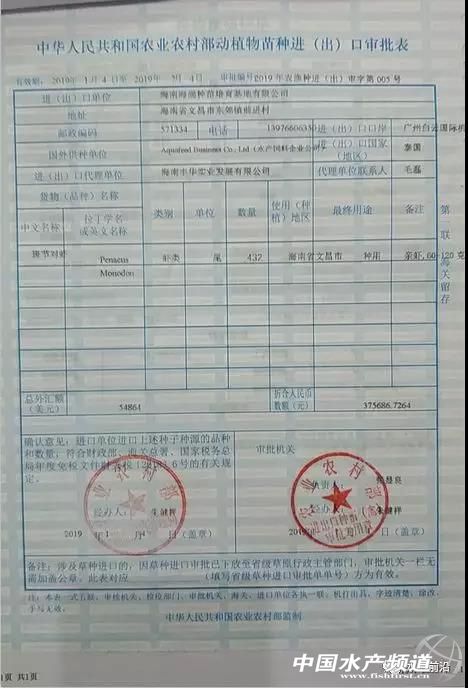 中华人民共和国农业农村部动植物苗种进（出）口审批表
有效期：2019年 1月 4日至 2019年 7月 4日 审批编号2019年农渔种进（出）审字第 005号
进（出）口单位 种苗培育基地有限公司
地址 海南省文昌市东郊镇前进村
邮政编码 571334 电话 进（出）口口岸 广州白云国际机
国外供种单位 Aquafeed Business Co., Ltd（水产饲料企业公司 进（出）口国家（地区） 泰国
进（出）口代理单位 海南中华实业发展有限公司 代理单位联系人 毛磊
货物（品种）名称 类别 单位 数量 使用（种植）地区 最终用途 备注
中文名称 拉丁学名或英文名称
斑节对虾 Penaeus Monodon 虾类 尾 432 海南省文昌市 种用 亲虾,60-120 克
第 联 海关留存
总外汇额（美元） 54864 折合人民币数额（元） 375686.7264
确认意见：进口单位进口上述种子种源的品种
和数量，符合财政部、海关总署、国家税务总
局年度免税文件财 税 号的有关规
定。
审批机关
负责人：
经办人： 朱健祥
经办人： 朱健祥
2019 年 1 月 4 日（盖章）
2019 年 月 日（盖章）
农业农村部
农业农村部
进出口种苗
审批专用章
备注：涉及草种进口的，因草种进口审批已下放至省级草原行政主管部门，审批机关一栏无
需加盖公章。此表对应 （填写省级草种进口审批单单号）方为有效。
注：本表一式五联，审批机关、检疫部门、审批机关、海关、进口单位各执一联。机打出具，字迹清楚，涂改、
手写无效。
中华人民共和国农业农村部监制
页 共1页
前沿
中国水产频道
www.fishfirst.cn